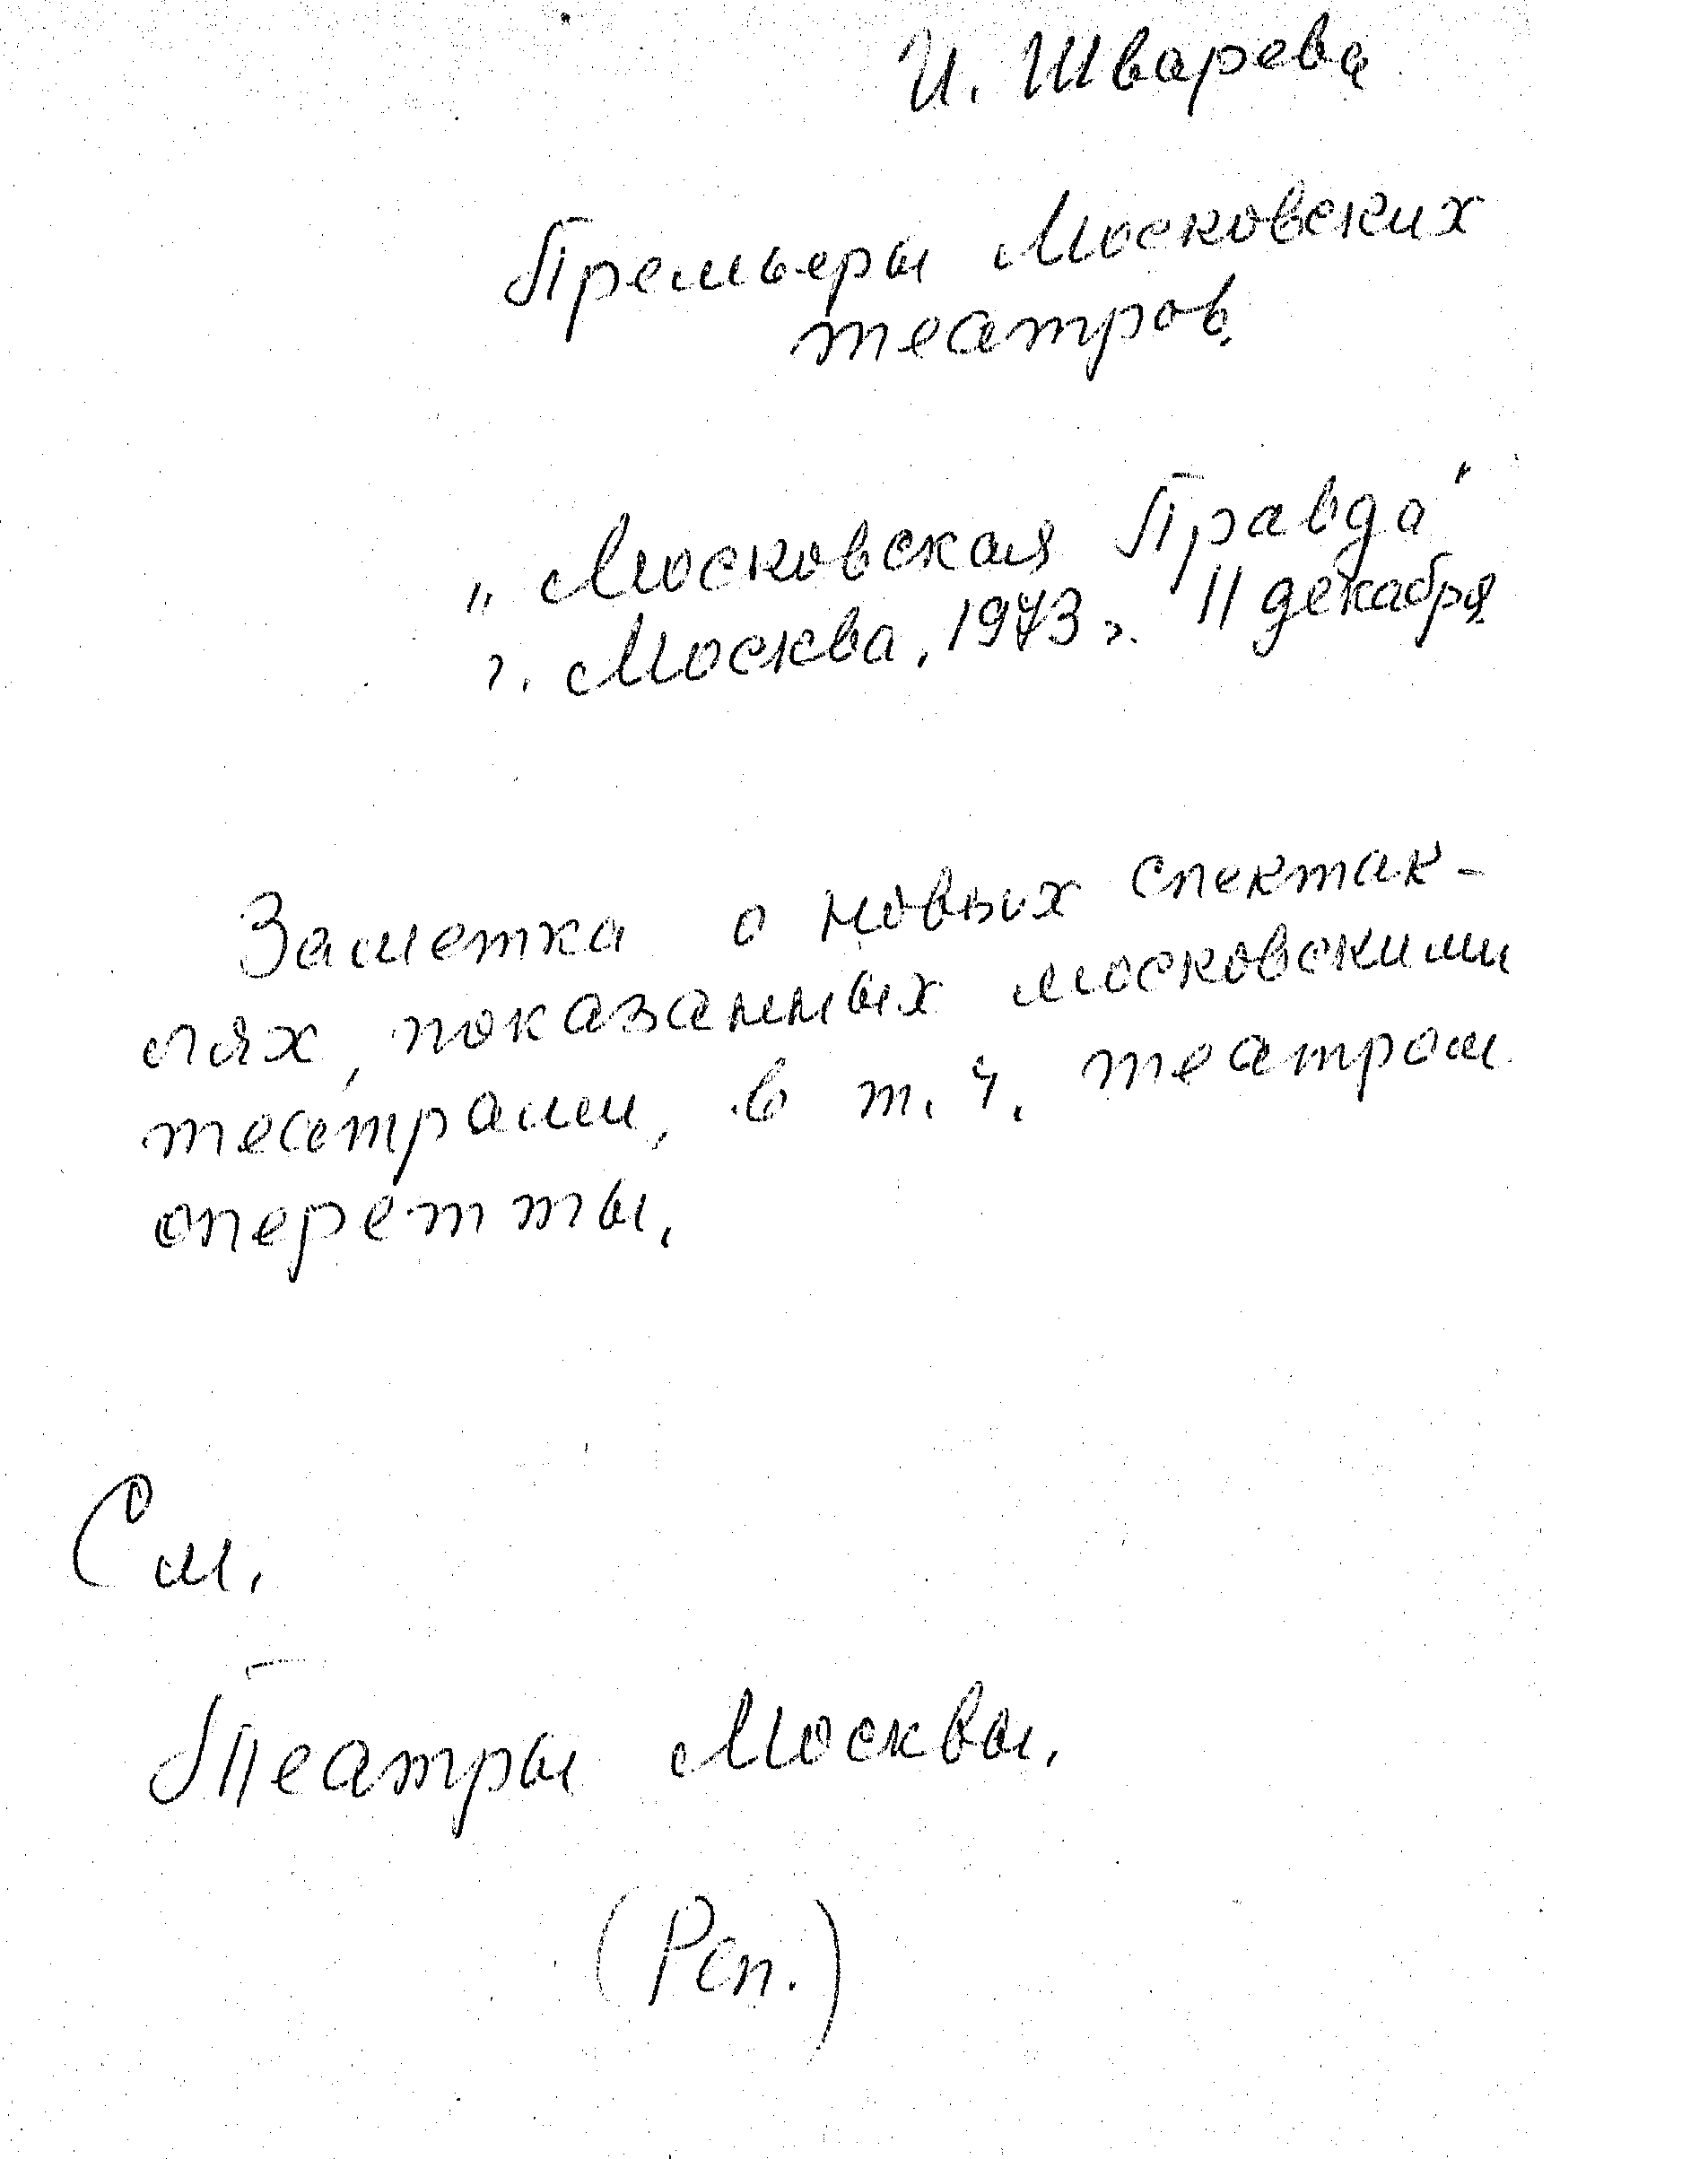 И. Шварева
Премьеры Московских
театров.
„Московская Правда"
г. Москва, 1973 г. 11 декабря
Заметка о новых спектак-
лях, показанных московскими
театрами, в т. ч. театром
оперетты.
См.
Театры Москвы.
(Реп.)